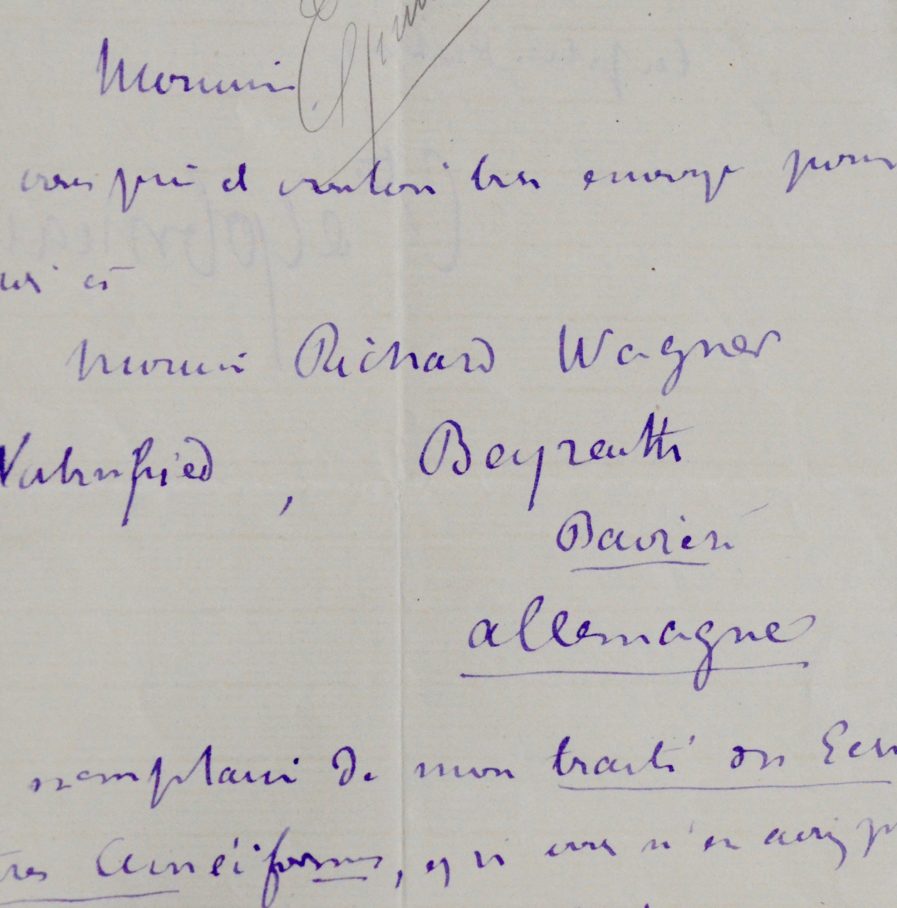 Monsieur
vous prie de vouloir bien envoyer pour
Monsieur Richard Wagner
Wahnfried, Beyreuth
Bavière
allemagne
exemplaire de mon traité des
Cunéiformes, si vous n'en avez